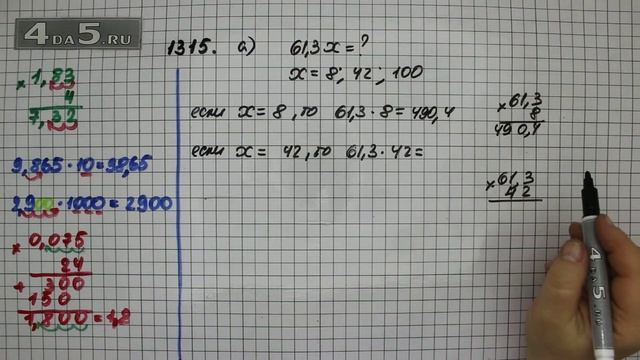 4DA5.RU
1315. а) 61,3x=?
x=8; 42; 100
если x=8, то 61,3·8=490,4
если x= 42, то 61,3·42=
× 61,3
8
490,4
× 61,3
42
× 1,83
4
7,32
9,865·10=98,65
2,900·1000=2900
× 0,075
24
+ 300
150
1,800=1,8
4
DA
5
.RU